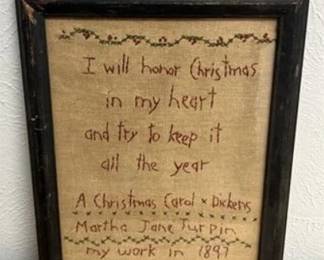 I will honor Christmas
in my heart
and try to keep it
all the year
A Christmas Carol × Dickens
Martha Jane Turpin
my work in 1897